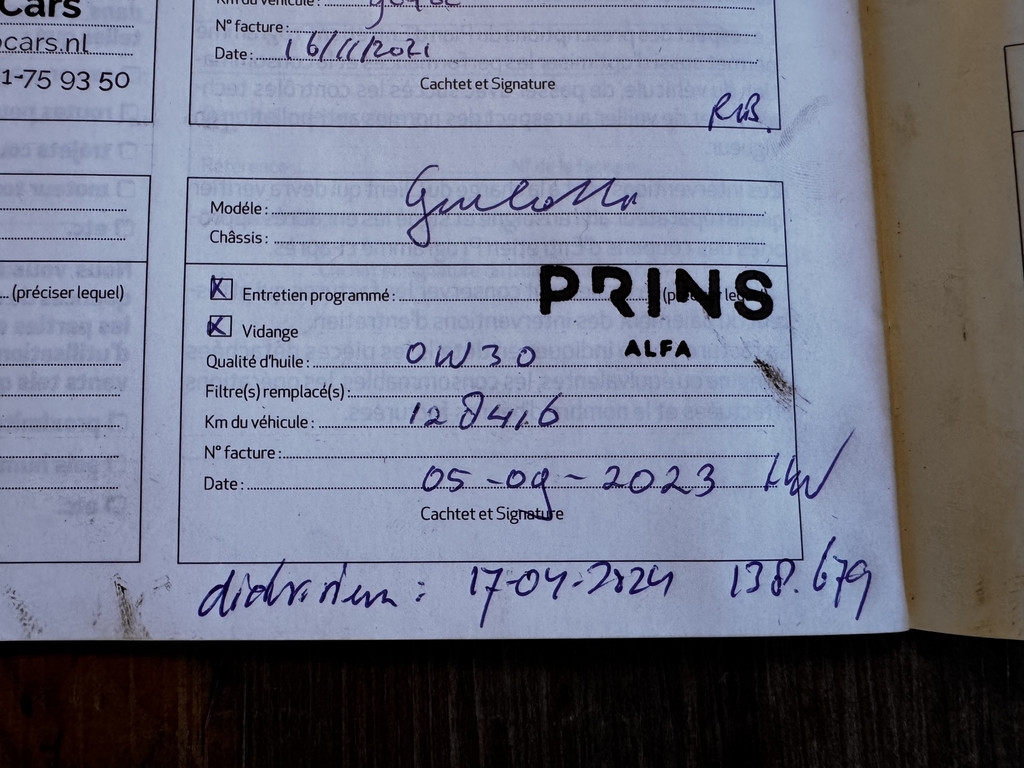 Cars
cars.nl
1-75 93 50
... (préciser lequel)
Km du véhicule :
N° facture :
Date : 16/11/2021
Cachtet et Signature
Modéle : Giulietta
Châssis :
Entretien programmé :
PRINS
ALFA
Vidange
Qualité d'huile : 0W30
Filtre(s) remplacé(s) :
Km du véhicule : 128416
N° facture :
Date : 05-09-2023
Cachtet et Signature
17-04-2024 138.679